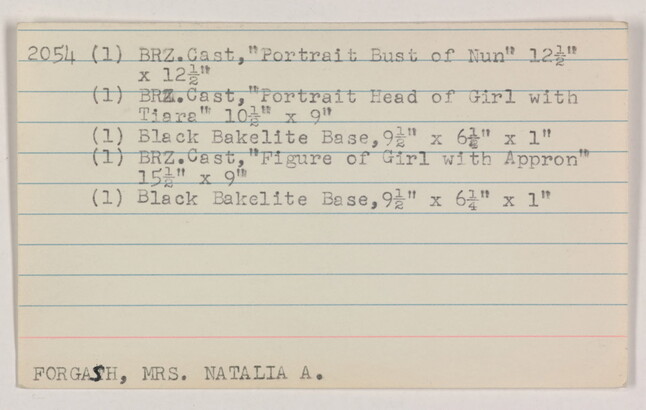 2054 (1) BRZ.Cast,"Portrait Bust of Nun" 12½"
x 12½"
(1) BRZ.Cast,"Portrait Head of Girl with
Tiara" 10½" x 9"
(1) Black Bakelite Base,9½" x 6¼" x 1"
(1) BRZ.Cast,"Figure of Girl with Appron"
15½" x 9"
(1) Black Bakelite Base,9½" x 6¼" x 1"
FORGASH, MRS. NATALIA A.